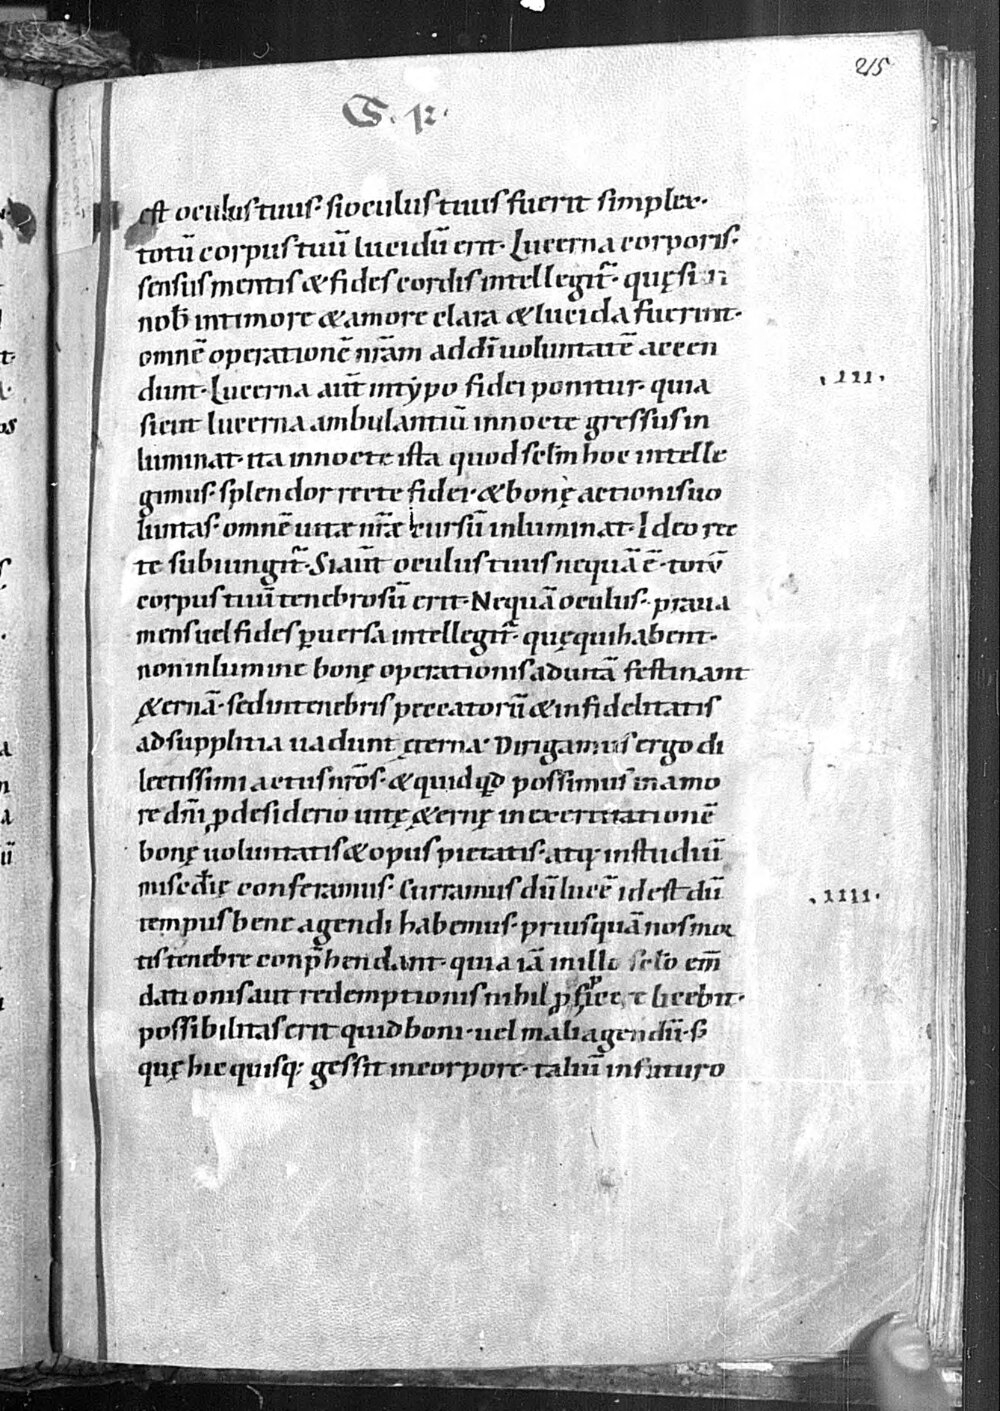 215
S. p.
est oculus tuus· si oculus tuus fuerit simplex·
totū corpus tuū lucidū erit· Lucerna corporis·
sensus mentis & fides cordis intellegit̄· quę si in
nob̄ intimore & amore clara & lucida fuerint·
omnē operationē nr̄am ad dn̄i uoluntatē accen
dunt· Lucerna aūt in typo fidei ponitur· quia
·III·
sicut lucerna ambulantiū in nocte gressus in
luminat· ita in nocte ista quod sclm̄ hoc intelle
gimus· splendor recte fidei· & bonę actionis uo
luntas· omnē uitæ nr̄æ cursū inluminat· Ideo rec
te subiungit̄· Si aūt oculus tuus nequā ē· totū
corpus tuū tenebrosū erit· Nequā oculus· praua
mens uel fides ꝑuersa intellegit̄· quę qui habent·
non in lumine bonę operationis ad uitā festinant
&ernā· sed in tenebris peccatorū & infidelitatis
ad supplitia uadunt ęterna· Dirigamus ergo di
lectissimi actus nr̄os· & quidq̄d possimus in amo
re dn̄i ꝓ desiderio uitę &ernę in exercitationē
bonę uoluntatis & opus pietatis· atq· in studiū
misc̄dię conferamus· Curramus dū lucē id est dū
·IIII·
tempus bene agendi habemus· priusquā nos mor
tis tenebre conp̄hendant· quia iā in illo sclo em̄
dationis aut redemptionis nihil
possibilitas erit quid boni· uel mali agendū· s̄
quę hic quisq· gessit in corpore· taliū in futuro